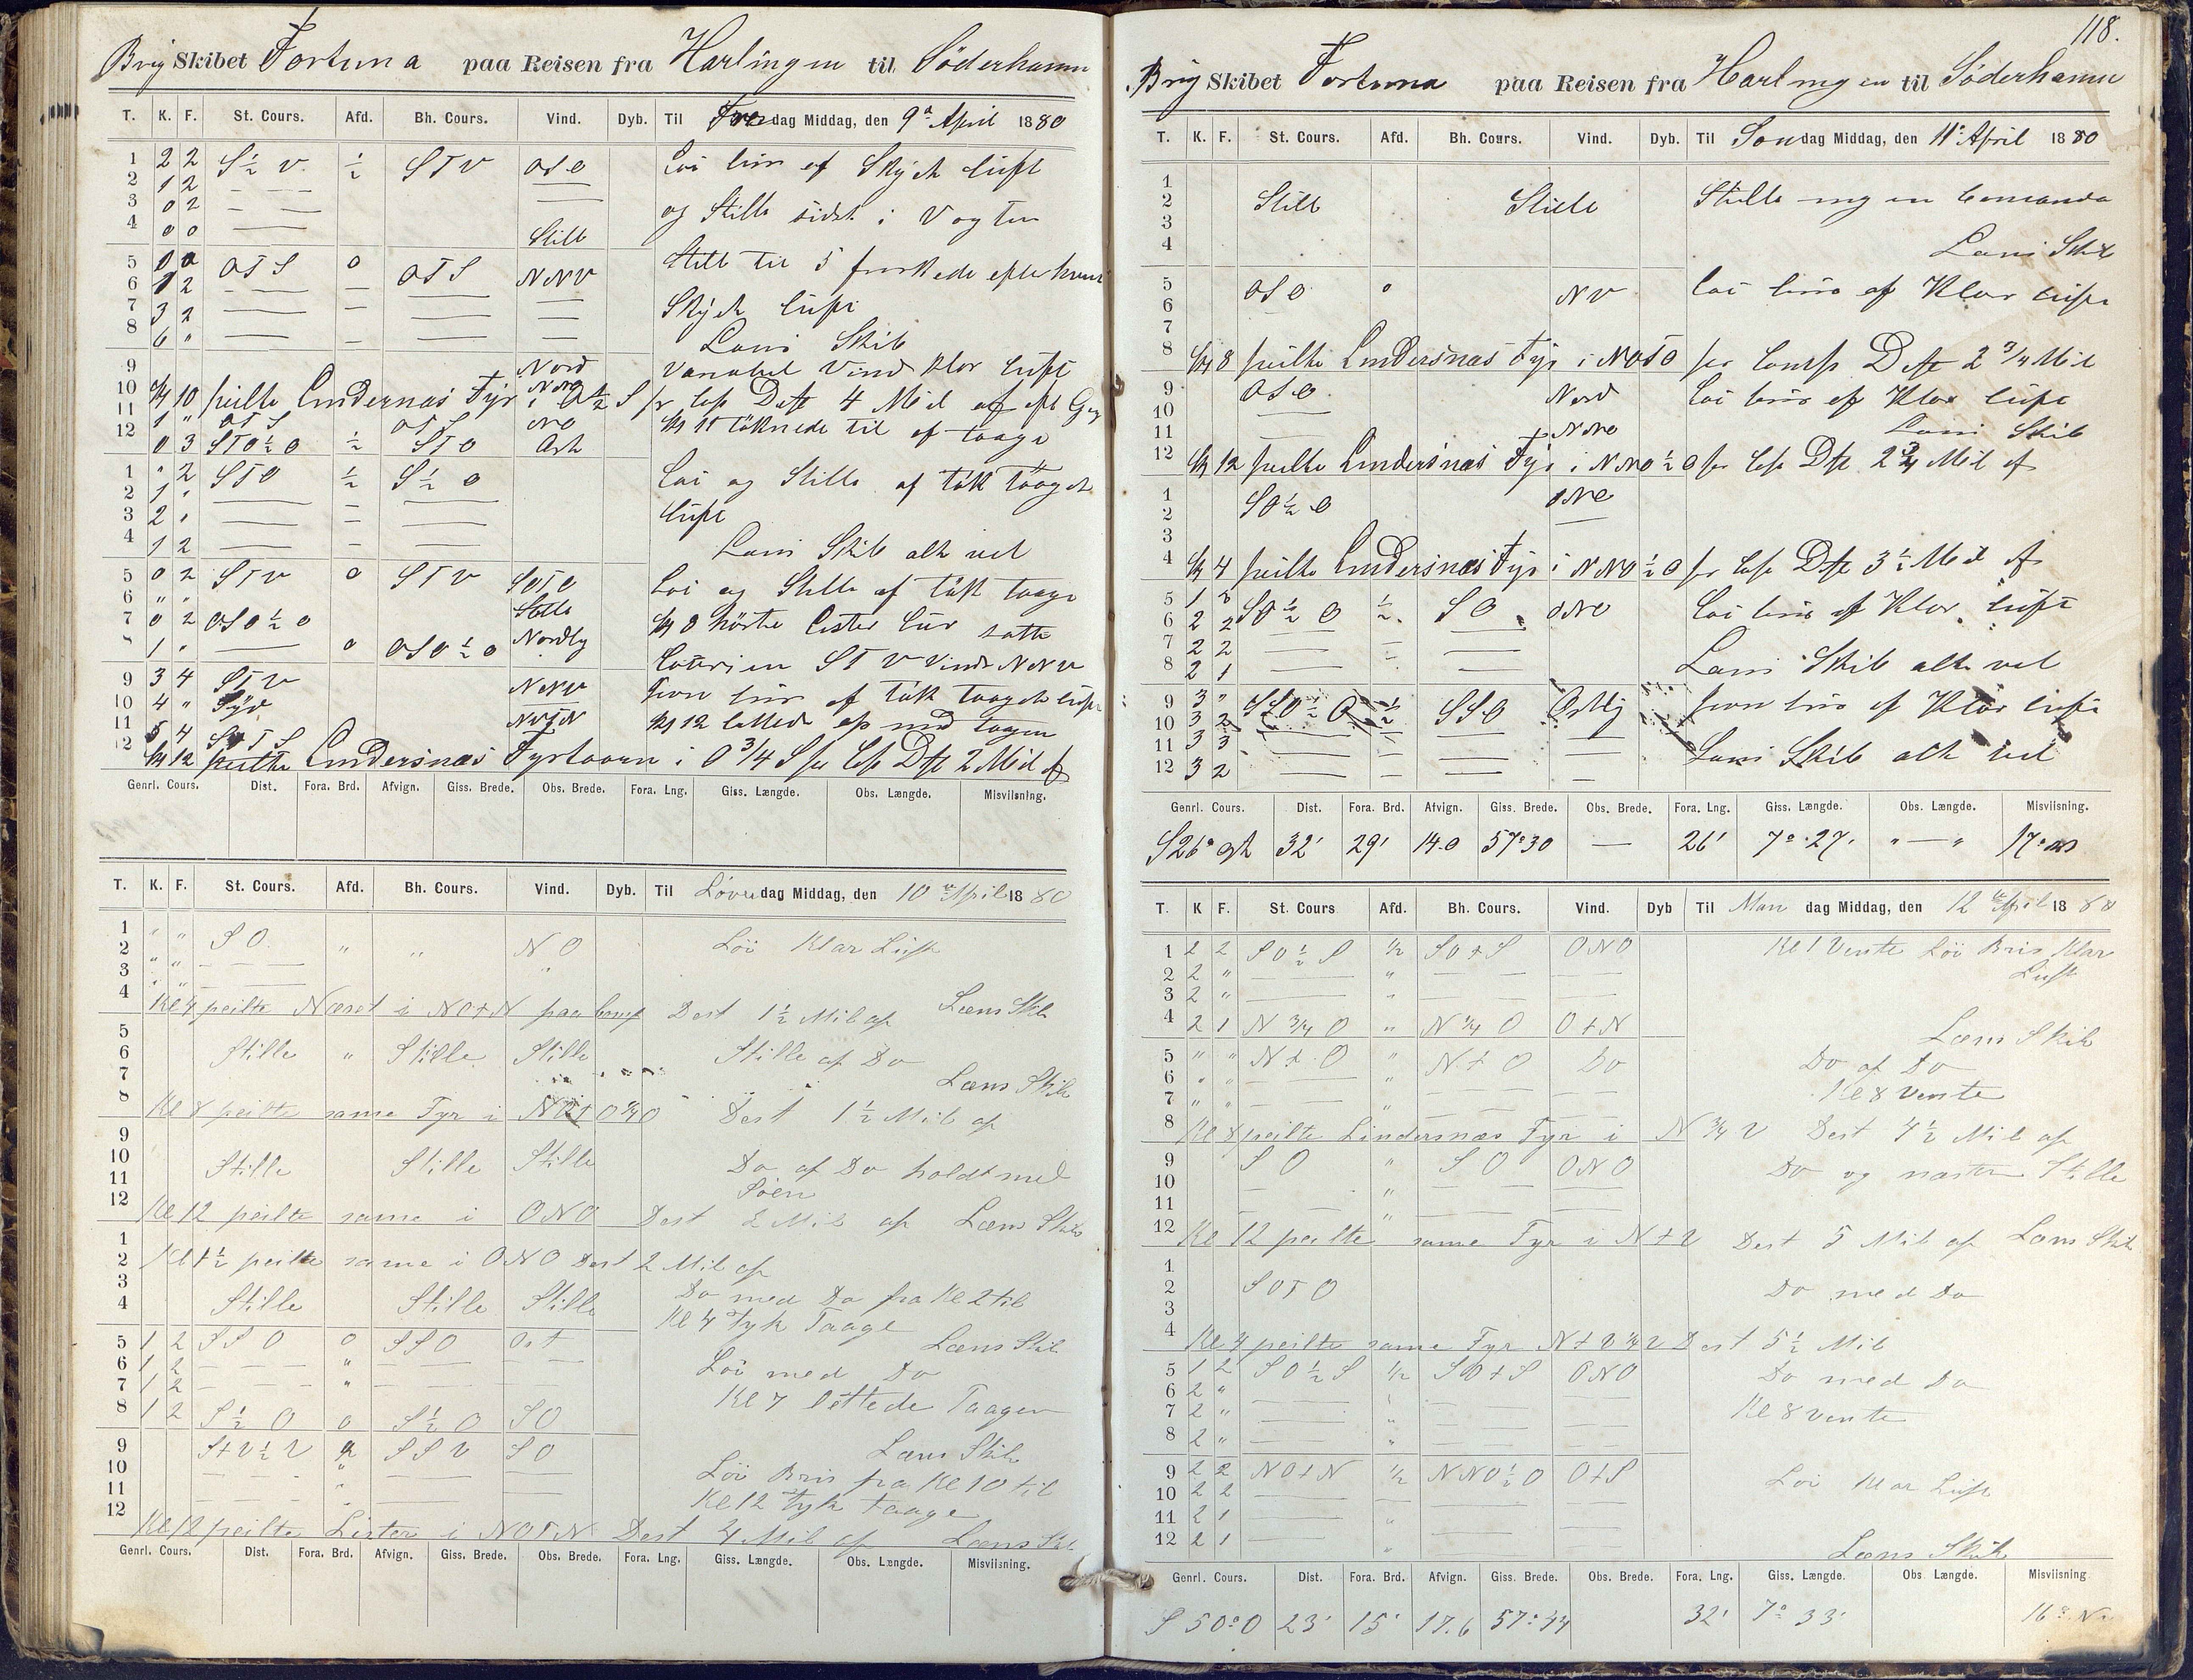 Brig Skibet Fortuna paa Reisen fra Harlingen til Söderhamn
T. K. F. St. Cours. Afd. Bh. Cours. Vind. Dyb. Til Fredag Middag, den 9de April 1880
1 2 2 S ½ V ½ STV OSO Löi bris af Skyet Luft
2 1 2
3 0 2 og Stille sidst i Vagten
4 0 0 Stille
5 0 0 OTS 0 OTS NNV Stille til 5 friskede efter
6 1 2
7 3 2 Skyet Luft
8 6 " Læns Skib
9 Nord Variabel Vind klar Luft
10 Kl 10 peilte Lindersnæs Fyr i O ½ S pr Comp Dist 4 Mil af
11 1 " OTS OTS NO Kl 11 tilknede til af taage
12 0 3 STO ½ O ½ STO Ost
1 " 2 STO ½ S ½ O Löi og Stille af tük taaget
2 1 " Luft
3 2 "
4 1 2 Læns Skib alt vel
5 0 2 STV 0 STV SOTO Löi og Stille af tük taage
6 " " Stille
7 0 2 OSO ½ O Nordlig Kl 8 hörte Lister Lur satte
8 1 " 0 OSO ½ O Coursen STV Vind NNV
9 3 4 STV NNV Jevn bris af tük taaget Luft
10 4 " Syd
11 5 4 NVTN Kl 12 lettede op med tagen
12 Kl 12 peilte Lindersnæs Fyrtaarn i O ¾ S pr Comp Dist 2 Mil af
Genrl. Cours. Dist. Fora. Brd. Afvign. Giss. Brede. Obs. Brede. Fora. Lng. Giss. Længde. Obs. Længde. Misviisning.
T. K. F. St. Cours. Afd. Bh. Cours. Vind. Dyb. Til Löverdag Middag, den 10de April 1880
1 " " SO " " NO Löi Klar Luft
2 " "
3 " "
4 Kl 4 peilte Næset i NOtN paa Comp Dest 1½ Mil af Læns Skib
5
6 Stille " Stille Stille Stille af Do
7 Læns Skib
8 Kl 8 peilte same Fyr i NOtO ¾ O Dest 1½ Mil af
9
10 Stille Stille Stille Do af Do holdt med
11 Söen
12 Kl 12 peilte same i ONO Dest 2 Mil af Læns Skib
1
2 peilte same i ONO Dest 2 Mil af
3 Stille Stille Stille Do med Do fra Kl 2 til
4 Kl 4 Tyk Taage
5 1 2 SSO 0 SSO Ost Læns Skib
6 1 2 " Löi med Do
7 1 2 " Kl 7 lettede Taagen
8 1 2 S ½ O 0 S ½ O SO
9 StV ½ V ½ SSV SO Læns Skib
10 " Löi Bris fra Kl 10 til
11 " Kl 12 Tyk Taage
12 Kl 12 peilte Lister i NOTN Dest 4 Mil af Læns Skib
Genrl. Cours. Dist. Fora. Brd. Afvign. Giss. Brede. Obs. Brede. Fora. Lng. Giss. Længde. Obs. Længde. Misviisning.
118.
Brig Skibet Fortuna paa Reisen fra Harlingen til Söderhamn
T. K. F. St. Cours. Afd. Bh. Cours. Vind. Dyb. Til Söndag Middag, den 11te April 1880
1
2 Stille Stille Stille ingen Comando
3
4 Læns Skib
5 OSO 0 NV Löi bris af Klar Luft
6
7
8 Kl 8 peilte Lindersnæs Fyr i NOTO pr Comp Dist 2 ¾ Mil
9 OSO Nord Löi bris af Klar Luft
10
11 NNO Læns Skib
12 Kl 12 peilte Lindersnæs Fyr i NNO ½ O pr Comp Dist 2 ¾ Mil af
1 SO ½ O ONO
2
3
4 Kl 4 peilte Lindersnæs Fyr i NNO ½ O pr Comp Dist 3 ½ Mil af
5 1 SO ½ O ½ SO ONO Löi bris af Klar Luft
6 2 2
7 2 2
8 2 1 Læns Skib alt vel
9 3 " SSO ½ O ½ SSO Ostlig Jevn bris af Klar Luft
10 3 2
11 3 3 Læns Skib alt vel
12 3 2
Genrl. Cours. Dist. Fora. Brd. Afvign. Giss. Brede. Obs. Brede. Fora. Lng. Giss. Længde. Obs. Længde. Misviisning.
S 26° Ost 32' 29' 14.0 57°30 — 26' 7°.27. " — " 17°
T. K F. St. Cours Afd. Bh. Cours. Vind. Dyb Til Mandag Middag, den 12te April 1880
1 2 2 SO ½ S ½ SOtS ONO Kl 1 Vente Löi Bris Klar
2 2 " " Luft
3 2 " "
4 2 1 N ¾ O " N ¾ O OtN Læns Skib
5 " " NtO " NtO Do Do af Do
6 " " " Kl 8 Vente
7 " " "
8 Kl 8 peilte Lindersnæs Fyr i N ¾ V Dest 4½ Mil af
9 SO " SO ONO Do og næsten Stille
10 "
11 "
12 Kl 12 peilte same Fyr i NtV Dest 5 Mil af Læns Skib
1
2 SOTO Do med Do
3
4 Kl 4 peilte same Fyr NtV ¼ V Dest 5½ Mil
5 1 2 SO ½ S ½ SOtS ONO Do med Do
6 2 "
7 2 " Kl 8 Vente
8 2 "
9 2 2 NOtN ½ NNO ½ O OtS Löi Klar Luft
10 2 2
11 2 1 "
12 2 1 " Læns Skib
Genrl. Cours. Dist. Fora. Brd. Afvign. Giss. Brede. Obs. Brede. Fora. Lng. Giss. Længde. Obs Længde. Misviisning
S 50° O 23' 15' 17.6 57°44 32' 7° 33' 16° N.